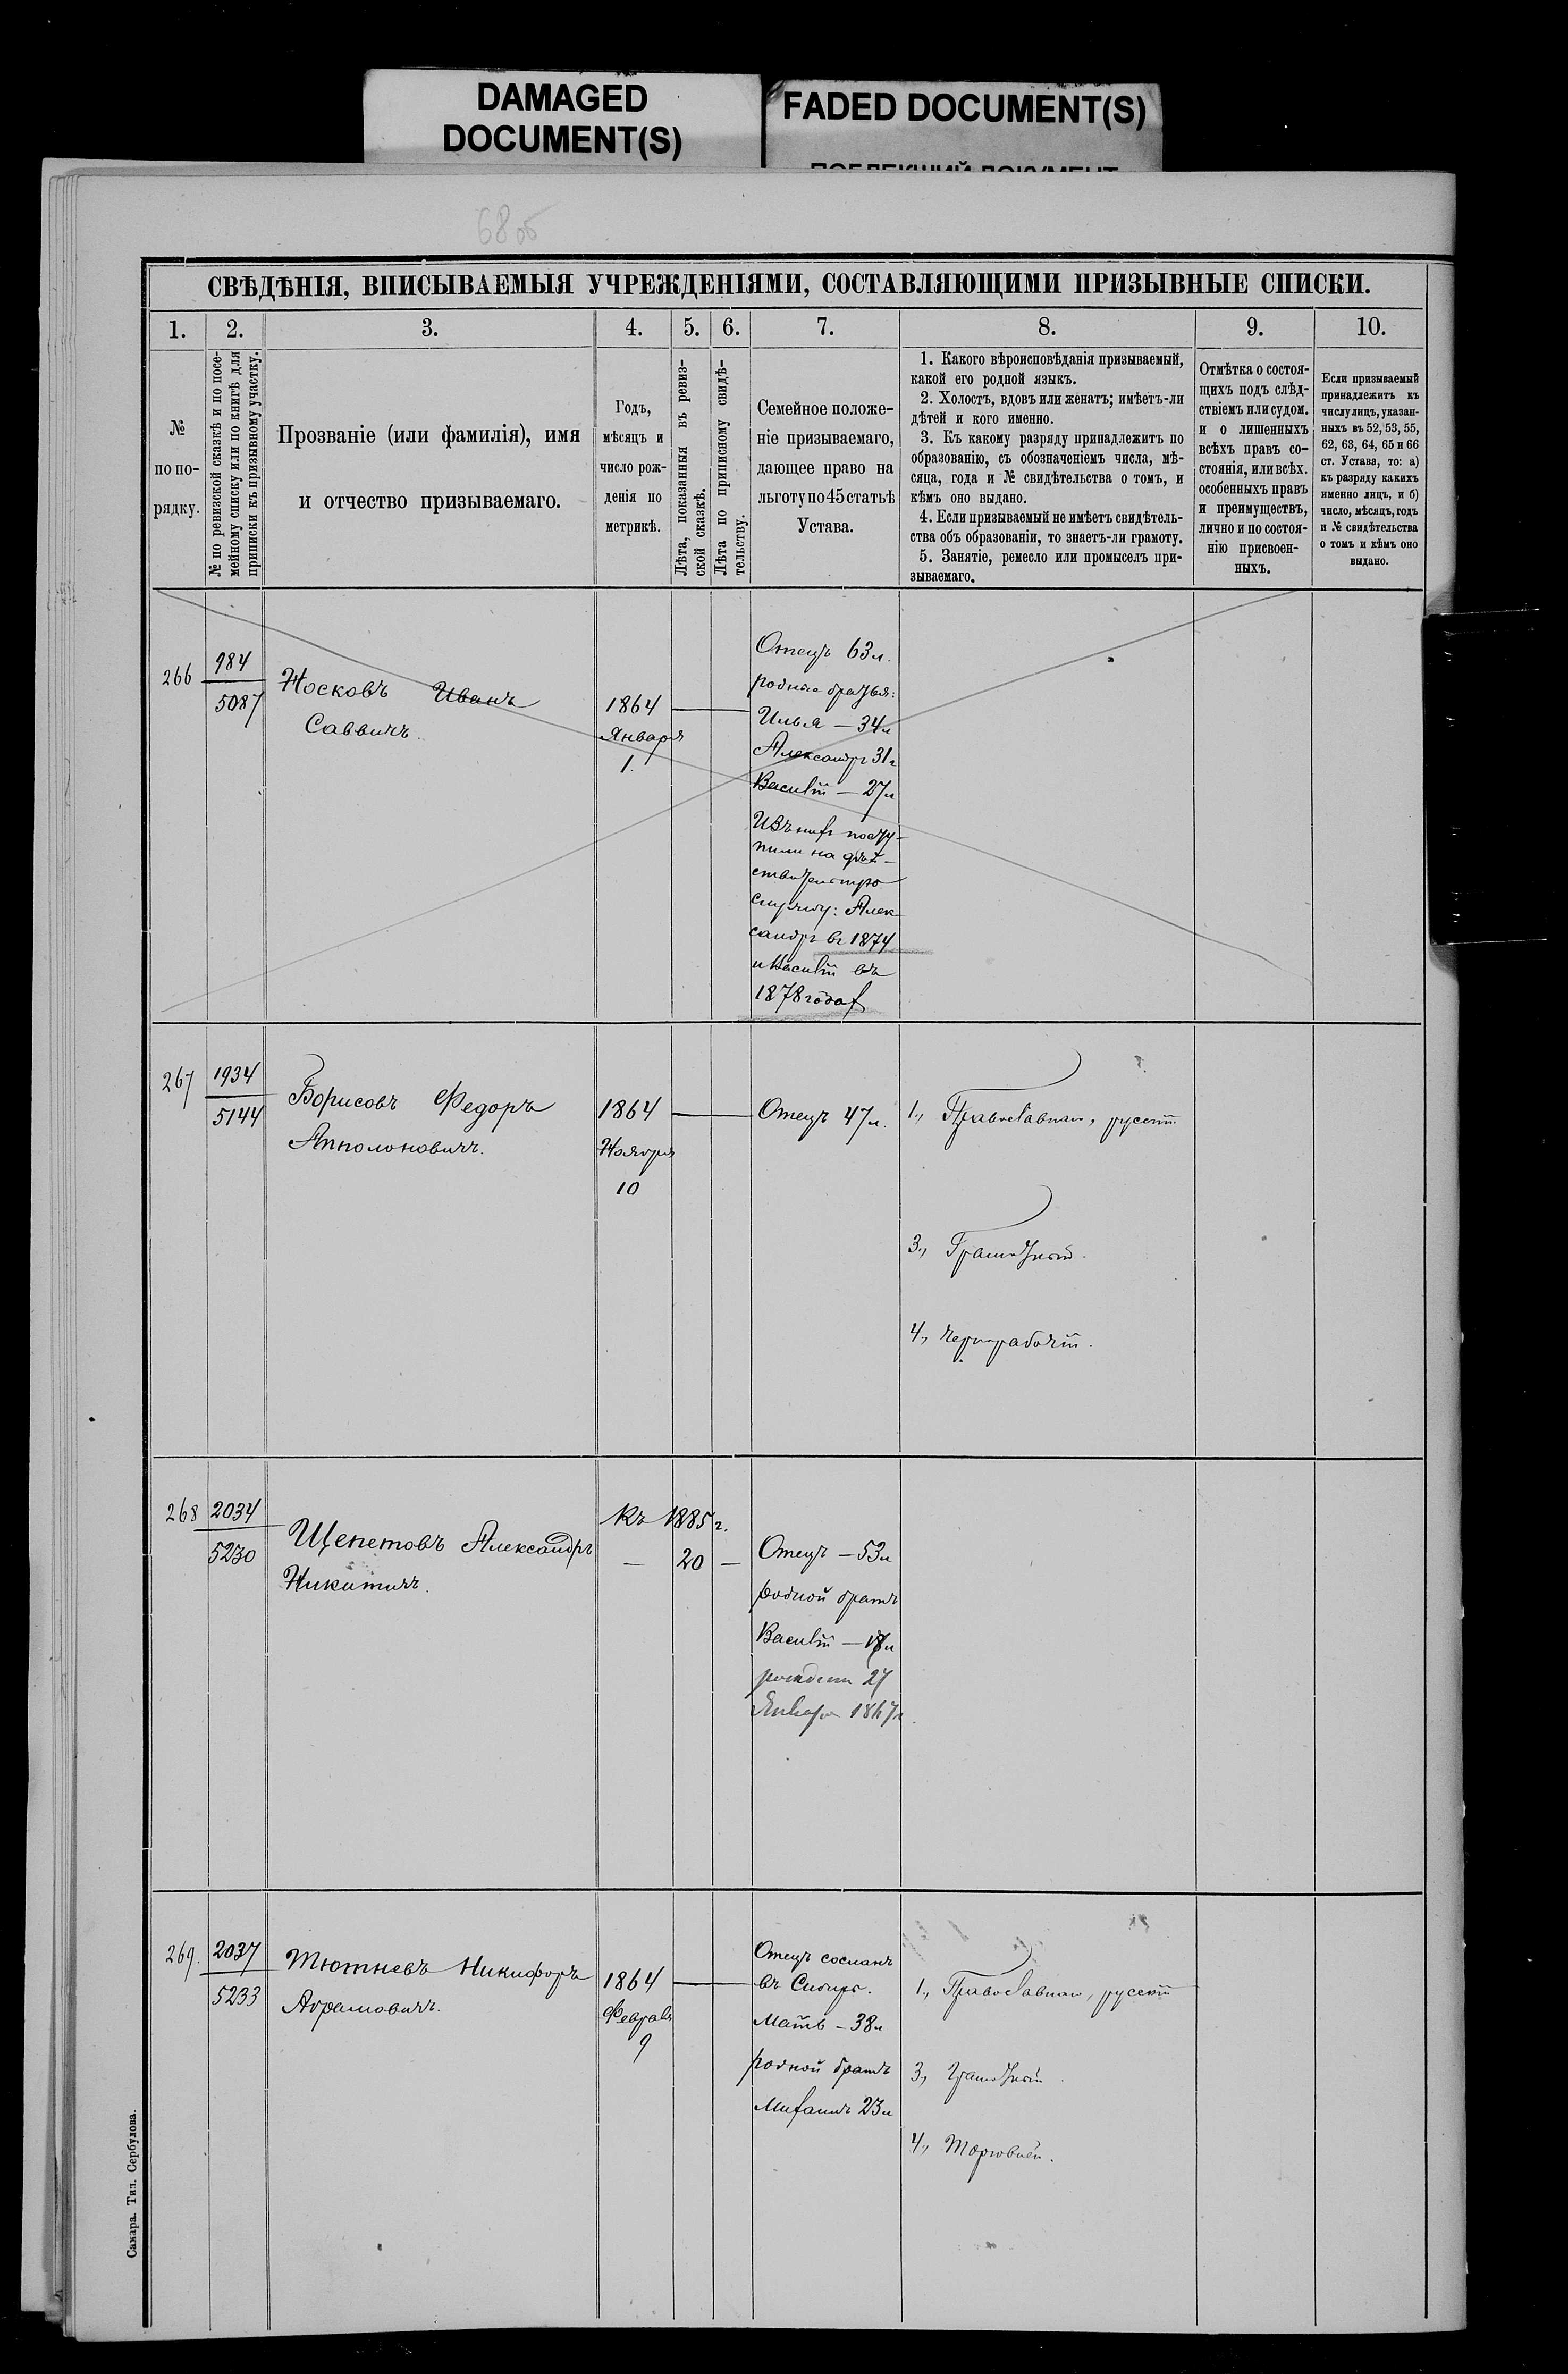 DAMAGED
DOCUMENT(S)
FADED DOCUMENT(S)
ПОБЛЕКШИЙ ДОКУМЕНТ
68 об
СВѢДѢНІЯ, ВПИСЫВАЕМЫЯ УЧРЕЖДЕНІЯМИ, СОСТАВЛЯЮЩИМИ ПРИЗЫВНЫЕ СПИСКИ.
1. 2. 3. 4. 5. 6. 7. 8. 9. 10.
№
по по-
рядку.
№ по ревизской сказкѣ и по посе-
мейному списку или по книгѣ для
приписки къ призывному участку.
Прозваніе (или фамилія), имя
и отчество призываемаго.
Годъ,
мѣсяцъ и
число рож-
денія по
метрикѣ.
Лѣта, показанныя въ ревиз-
ской сказкѣ.
Лѣта по приписному свидѣ-
тельству.
Семейное положе-
ніе призываемаго,
дающее право на
льготу по 45 статьѣ
Устава.
1. Какого вѣроисповѣданія призываемый,
какой его родной языкъ.
2. Холостъ, вдовъ или женатъ; имѣетъ-ли
дѣтей и кого именно.
3. Къ какому разряду принадлежитъ по
образованію, съ обозначеніемъ числа, мѣ-
сяца, года и № свидѣтельства о томъ, и
кѣмъ оно выдано.
4. Если призываемый не имѣетъ свидѣтель-
ства объ образованіи, то знаетъ-ли грамоту.
5. Занятіе, ремесло или промыселъ при-
зываемаго.
Отмѣтка о состоя-
щихъ подъ слѣд-
ствіемъ или судомъ.
и о лишенныхъ
всѣхъ правъ со-
стоянія, или всѣх.
особенныхъ правъ
и преимуществъ,
лично и по состоя-
нію присвоен-
ныхъ.
Если призываемый
принадлежитъ къ
числу лицъ, указан-
ныхъ въ 52, 53, 55,
62, 63, 64, 65 и 66
ст. Устава, то: а)
къ разряду какихъ
именно лицъ, и б)
число, мѣсяцъ, годъ
и № свидѣтельства
о томъ и кѣмъ оно
выдано.
266
984
5087
Носковъ Иванъ
Саввичъ.
1864
Января
1.
Отецъ 63 л.
родные братья:
Илья — 34 л
Александръ 31 г
Василій — 27 л
Изъ нихъ посту-
пили на дѣй-
ствительную
службу: Алек-
сандръ въ 1874
и Василій въ
1878 годах
267
1934
5144
Борисовъ Федоръ
Апполоновичъ.
1864
Ноября
10
Отецъ 47 л.
1., Православнаго, русскій
3., Грамотный.
4., Чернорабочій.
268
2034
5230
Щепетовъ Александръ
Никитичъ.
Къ 1885 г.
— 20 —
Отецъ — 53 л
родной братъ
Василій — 17 л
рожденн 27
Января 1867 г.
269.
2037
5233
Тютневъ Никифоръ
Абрамовичъ.
1864
Февраля
9
Отецъ сосланъ
въ Сибирь.
Мать — 38 л
родной братъ
Михаилъ 23 л
1., Православнаго, русскій
3., Грамотный.
4., Торговлей.
Самара. Тип. Сербулова.